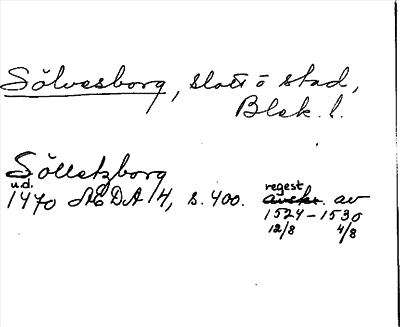 Sölvesborg, slott o stad,
Blek. l.
Sölletzborg
u.d. regest
1470 ÆDA 4, s. 400. avskr. av
1524-1530
12/8 4/8